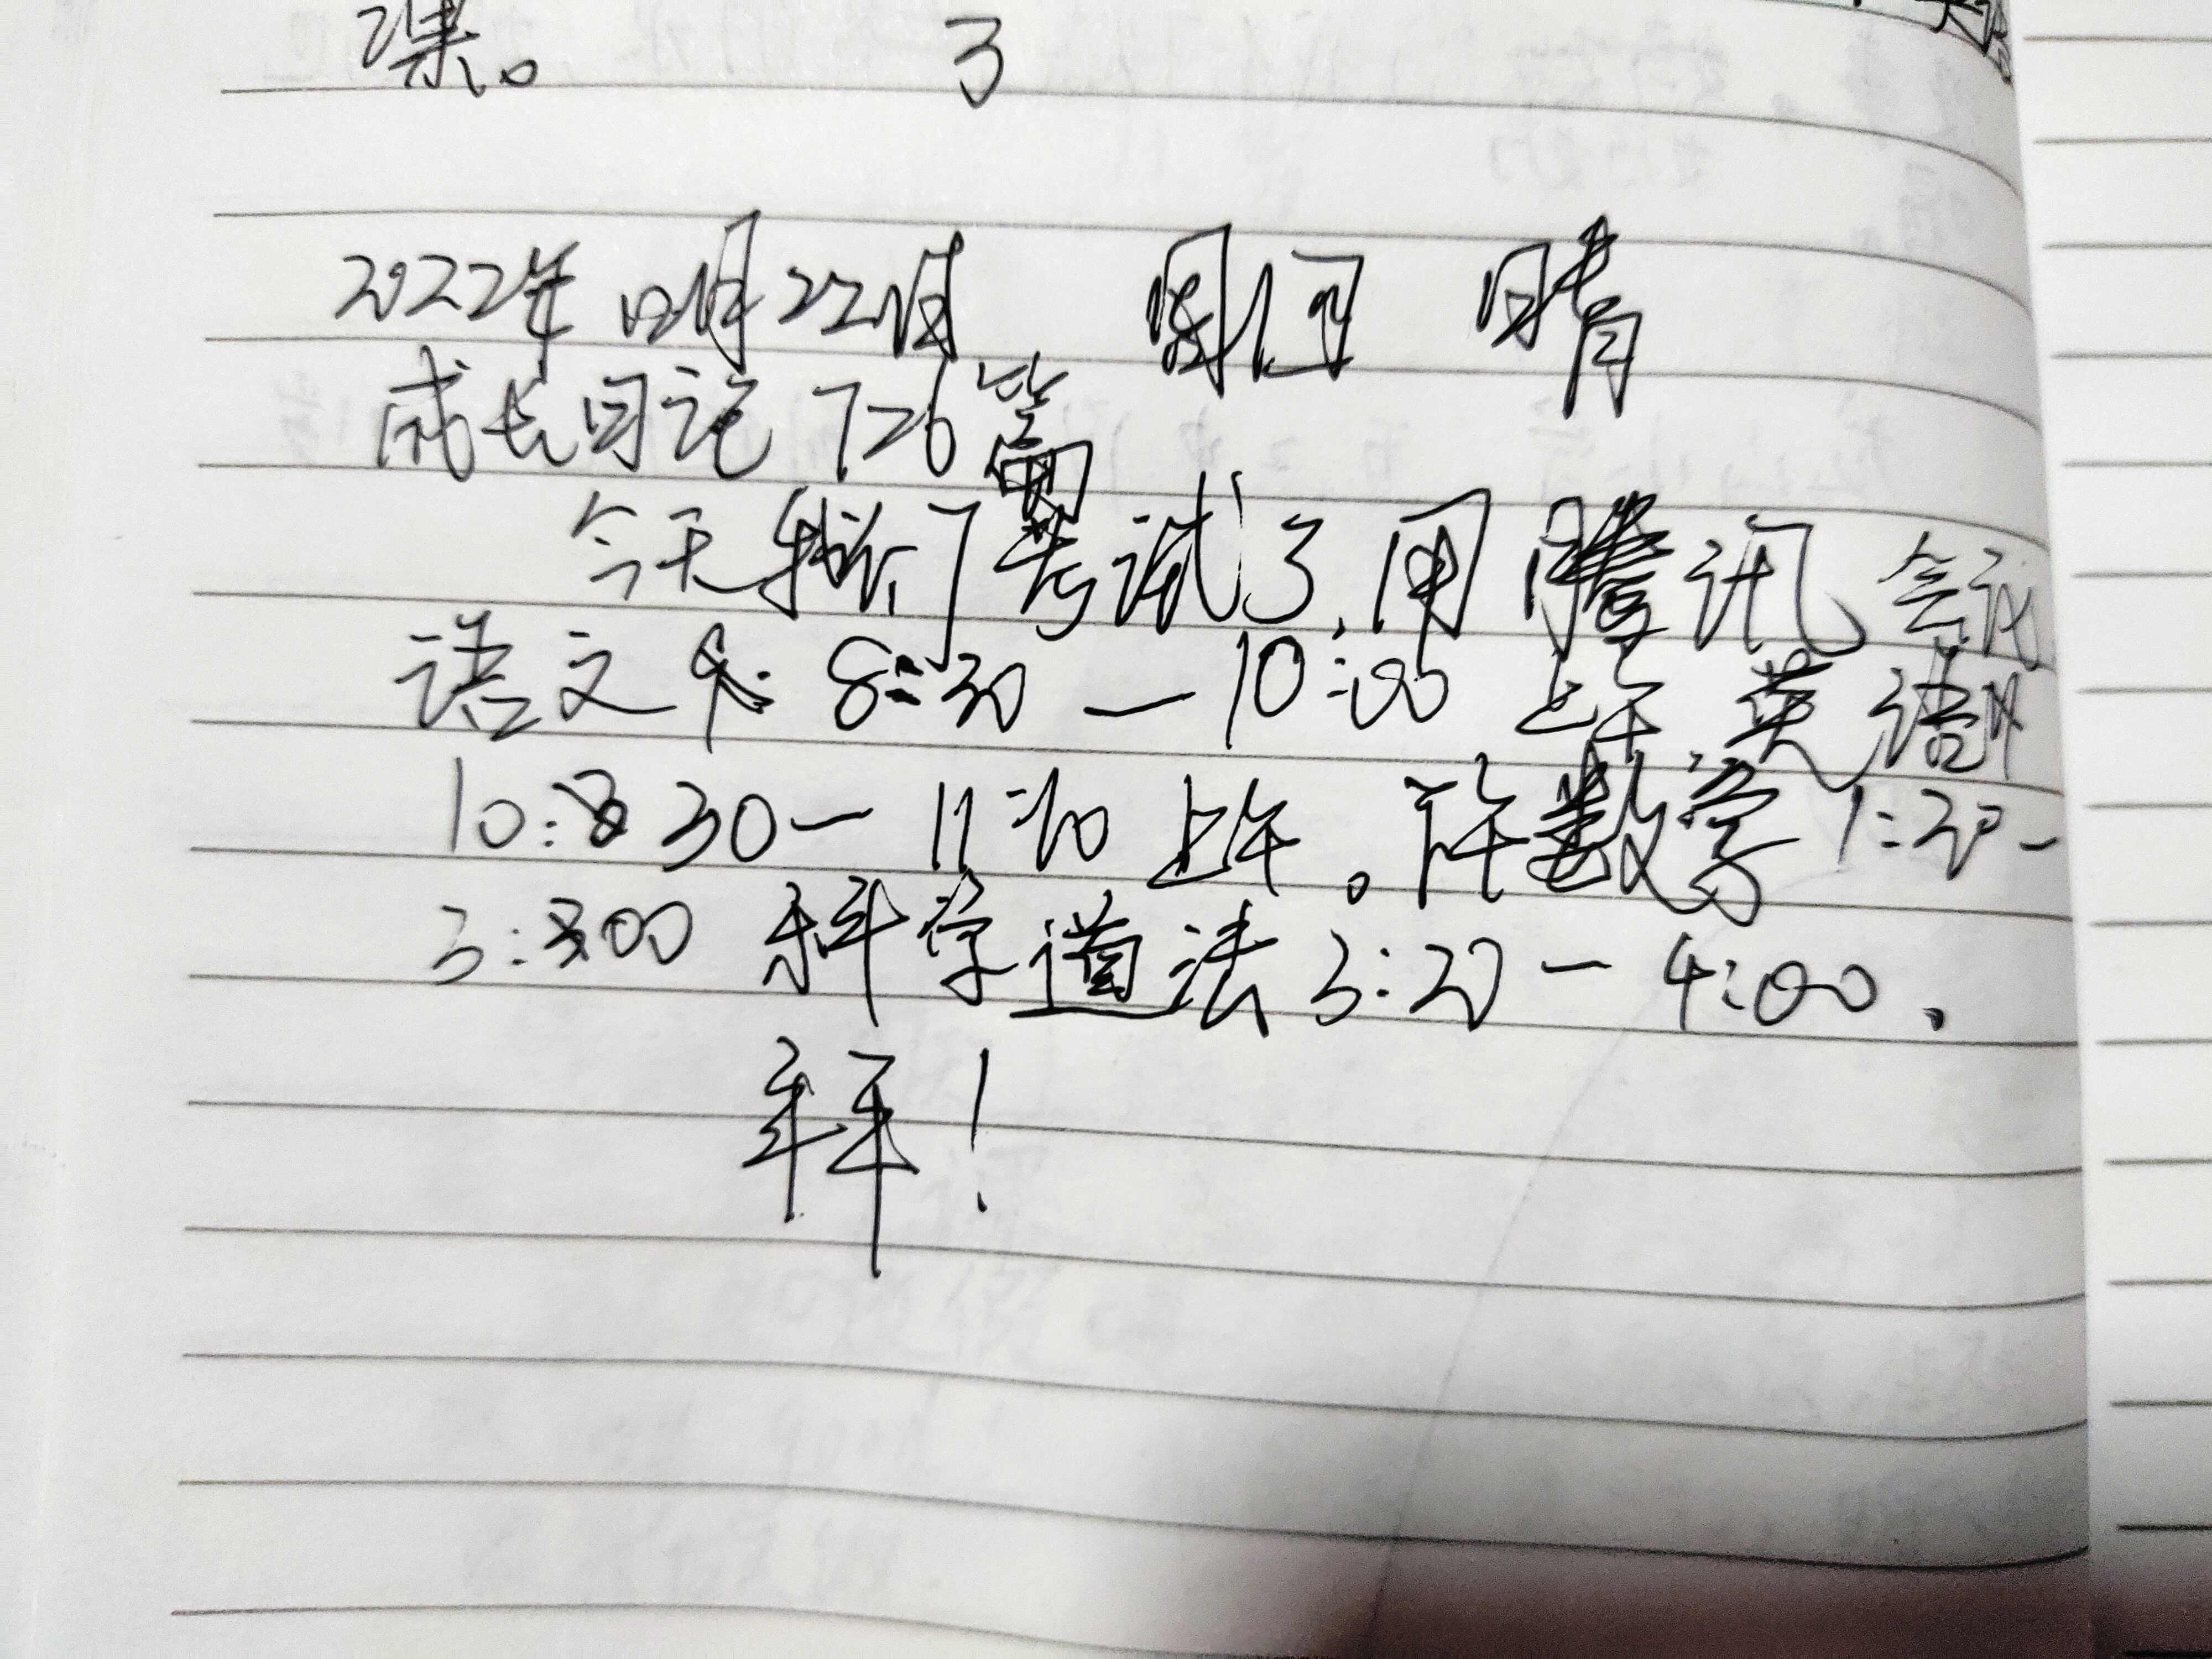 课。 3
2022年12月22日 周四 晴
成长日记726篇
今天我们考试了,用腾讯会议
语文 8:30—10:00 上午,英语
10:30—11:10 上午。下午数学1:20-
3:00 科学道法3:20—4:00.
拜!